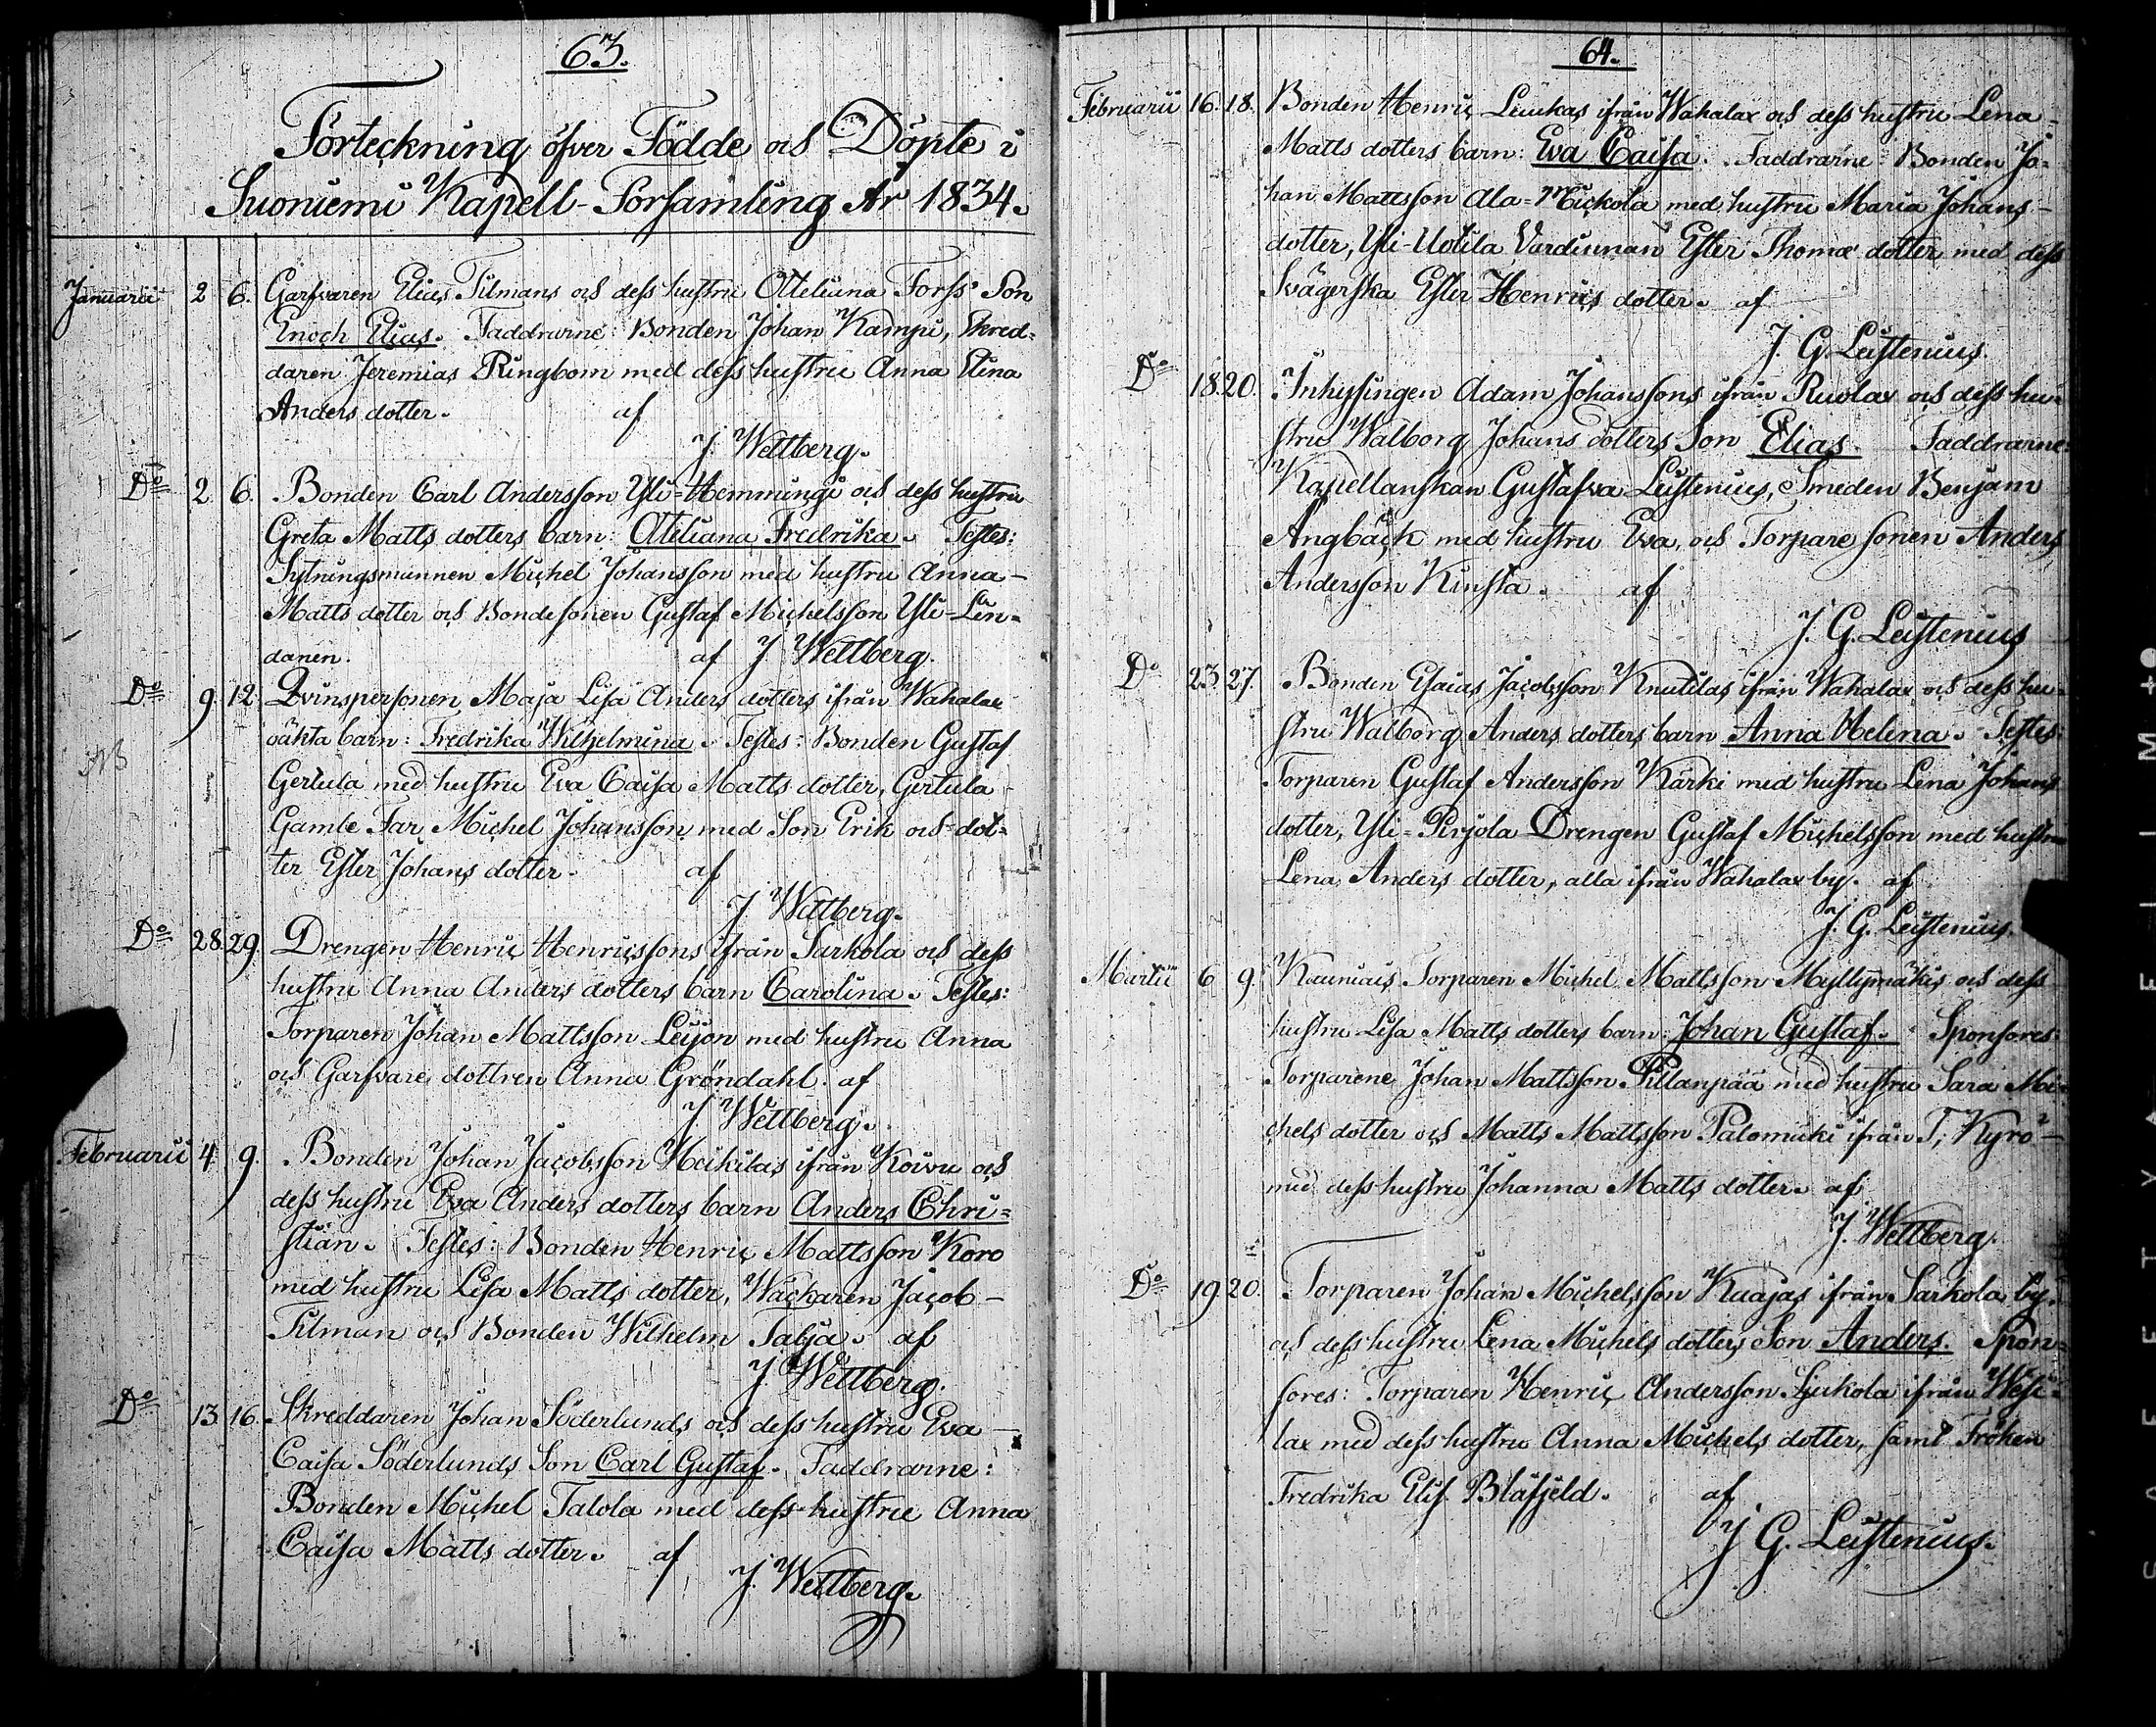 63.
Förteckning öfver Födde och Döpte i
Suoniemi Kapell-Församling År 1834.
Januarii 2 6. Garfvaren Elias Tilmans och dess hustru Otteliana Forss' Son
Enoch Elias. Faddrarne: Bonden Johan Kampi, Skred-
daren Jeremias Ringbom med dess hustru Anna Stina
Anders dotter. af
J. Wettberg.
Do 2 6. Bonden Carl Andersson Yli-Hemmingi och dess hustru
Greta Matts dotters barn: Otteliana Fredrika. Testes:
Sytningsmannen Michel Johansson med hustru Anna-
Matts dotter och Bondesonen Gustaf Michelsson Yli-Lin-
danen. af J Wettberg.
Do 9 12 Qvinspersonen Maja Lisa Anders dotters ifrån Wahalax
oäkta barn: Fredrika Wilhelmina. Testes: Bonden Gustaf
NB
Gertula med hustru Eva Caisa Matts dotter, Gertula
Gamle Far Michel Johansson med Son Erik och dot-
ter Ester Johans dotter. af
J Wettberg.
Do 28. 29. Drengen Henric Henricssons ifrån Sarkola och dess
hustru Anna Anders dotters barn Carolina. Testes:
Torparen Johan Mattsson Leijon med hustru Anna
och Garfvare dottren Anna Gröndahl. af
J Wettberg.
Februarii 4. 9. Bonden Johan Jacobsson Heikilas ifrån Koivu och
dess hustru Eva Anders dotters barn Anders Chri-
stian. Testes: Bonden Henric Mattsson Koro
med hustru Lisa Matts dotter, Wäckaren Jacob-
Tilman och Bonden Wilhelm Talja. af
J. Wettberg.
Do 13 16. Skreddaren Johan Söderlunds och dess hustru Eva
Caisa Söderlunds Son Carl Gustaf. Faddrarne:
Bonden Michel Talola med dess hustru Anna
Caisa Matts dotter. af
J. Wettberg.
64.
Februarii 16. 18. Bonden Henric Leukas ifrån Wahalax och dess hustru Lena-
Matts dotters barn: Eva Caisa. Faddrarne: Bonden Jo-
han Mattsson Ala-Mickola med hustru Maria Johans-
dotter, Yli-Uotila Värdinnan Ester Thomæ dotter med dess
Svägerska Ester Henrics dotter. af
J. G. Leistenius.
Do 18. 20. Inhysingen Adam Johanssons ifrån Ruolax och dess hu-
stru Walborg Johans dotters Son Elias. Faddrarne:
Kapellanskan Gustafva Leistenius, Smeden Benjam
Ångbäck med hustru Eva, och Torpare sonen Anders
Andersson Kinsta. af
J. G. Leistenius
Do 23. 27. Bonden Esaias Jacobsson Knutilas ifrån Wahalax och dess hu-
stru Walborg Anders dotters barn Anna Helena. Testes:
Torparen Gustaf Andersson Kärki med hustru Lena Johans
dotter, Yli-Pirjola Drengen Gustaf Michelsson med hustru
Lena Anders dotter, alla ifrån Wahalax by. af
J. G. Leistenius.
Martii 6 9. Kauniais Torparen Michel Mattsson Myllymäkis och dess
hustru Lisa Matts dotters barn: Johan Gustaf. Sponsores:
Torparene Johan Mattsson Pillanpää med hustru Sara Mi-
chels dotter och Matts Mattsson Palomäki ifrån T, Kyrö-
med dess hustru Johanna Matts dotter. af
J. Wettberg.
Do 19 20. Torparen Johan Michelsson Kuajas ifrån Sarkola by.
och dess hustru Lena Michels dotters Son Anders. Spon-
sores: Torparen Henric Andersson Sjukola ifrån Wesi-
lax med dess hustru Anna Michels dotter, samt Fröken
Fredrika Elis. Blåfjeld. af
J G. Leistenius.